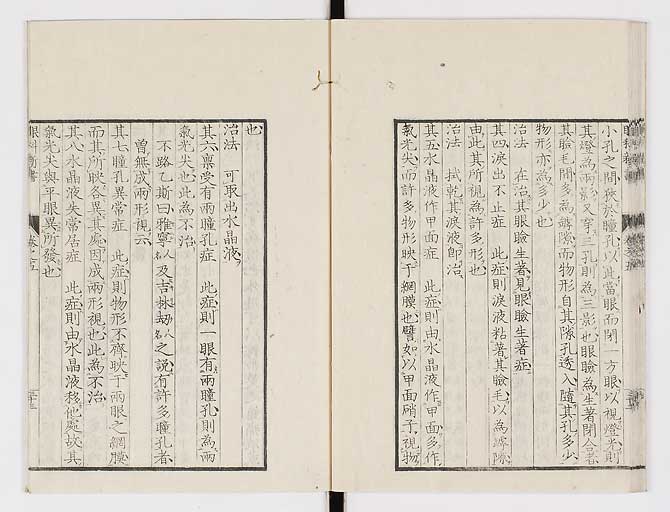 小孔之間狹於瞳孔以此當眼而閉一方眼以視燈火則
其燈為兩影又穿三孔則為三影也眼瞼為生著閉合者
其瞼毛間多為罅隙而物形自其隙孔透入隨其孔多少
物形亦為多少也
治法 在治其眼瞼生著見眼瞼生著症
其四淚出不止症 此症則淚液粘著其瞼毛以為罅隙
由此其所視為許多形也
治法 拭乾其淚液即治
其五水晶液作甲面症 此症則由水晶液作甲面多作
氣光尖而許多物形映于網膜也譬如以甲面硝子視物
也
治法 可取出水晶液
其六稟受有兩瞳孔症 此症則一眼有兩瞳孔則為兩
氣光尖也此為不治
不路乙斯曰雅寧人名以及吉林劫人名之說有許多瞳孔者
曾無成兩形視云
其七瞳孔異常症 此症則物形不齊映于兩眼之網膜
而其所映各異其處因成兩形視也此為不治
其八水晶液失常居症 此症則由水晶液移他處故其
氣光尖與平眼異所發也
眼科新書
卷之五